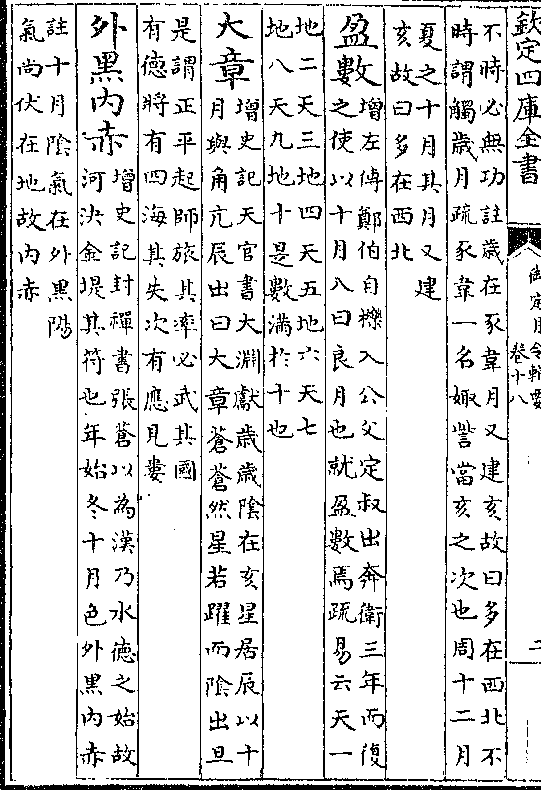 欽定四庫全書
御定月令輯要
卷十八
二
不時必無功註歲在豕韋月又建亥故曰多在西北不
時謂觸歲月疏豕韋一名娵訾當亥之次也周十二月
夏之十月其月又建
亥故曰多在西北
盈數增左傳鄭伯自櫟入公父定叔出奔衛三年而復
之使以十月入曰良月也就盈數焉疏易云天一
地二天三地四天五地六天七
地八天九地十是數滿於十也
大章增史記天官書大淵獻歲歲陰在亥星居辰以十
月與角亢辰出曰大章蒼蒼然星若躍而陰出旦
是謂正平起師旅其率必武其國
有德將有四海其失次有應見婁
外黑內赤增史記封禪書張蒼以為漢乃水德之始故
河決金堤其符也年始冬十月色外黑內赤
註十月陰氣在外黑陽
氣尚伏在地故內赤